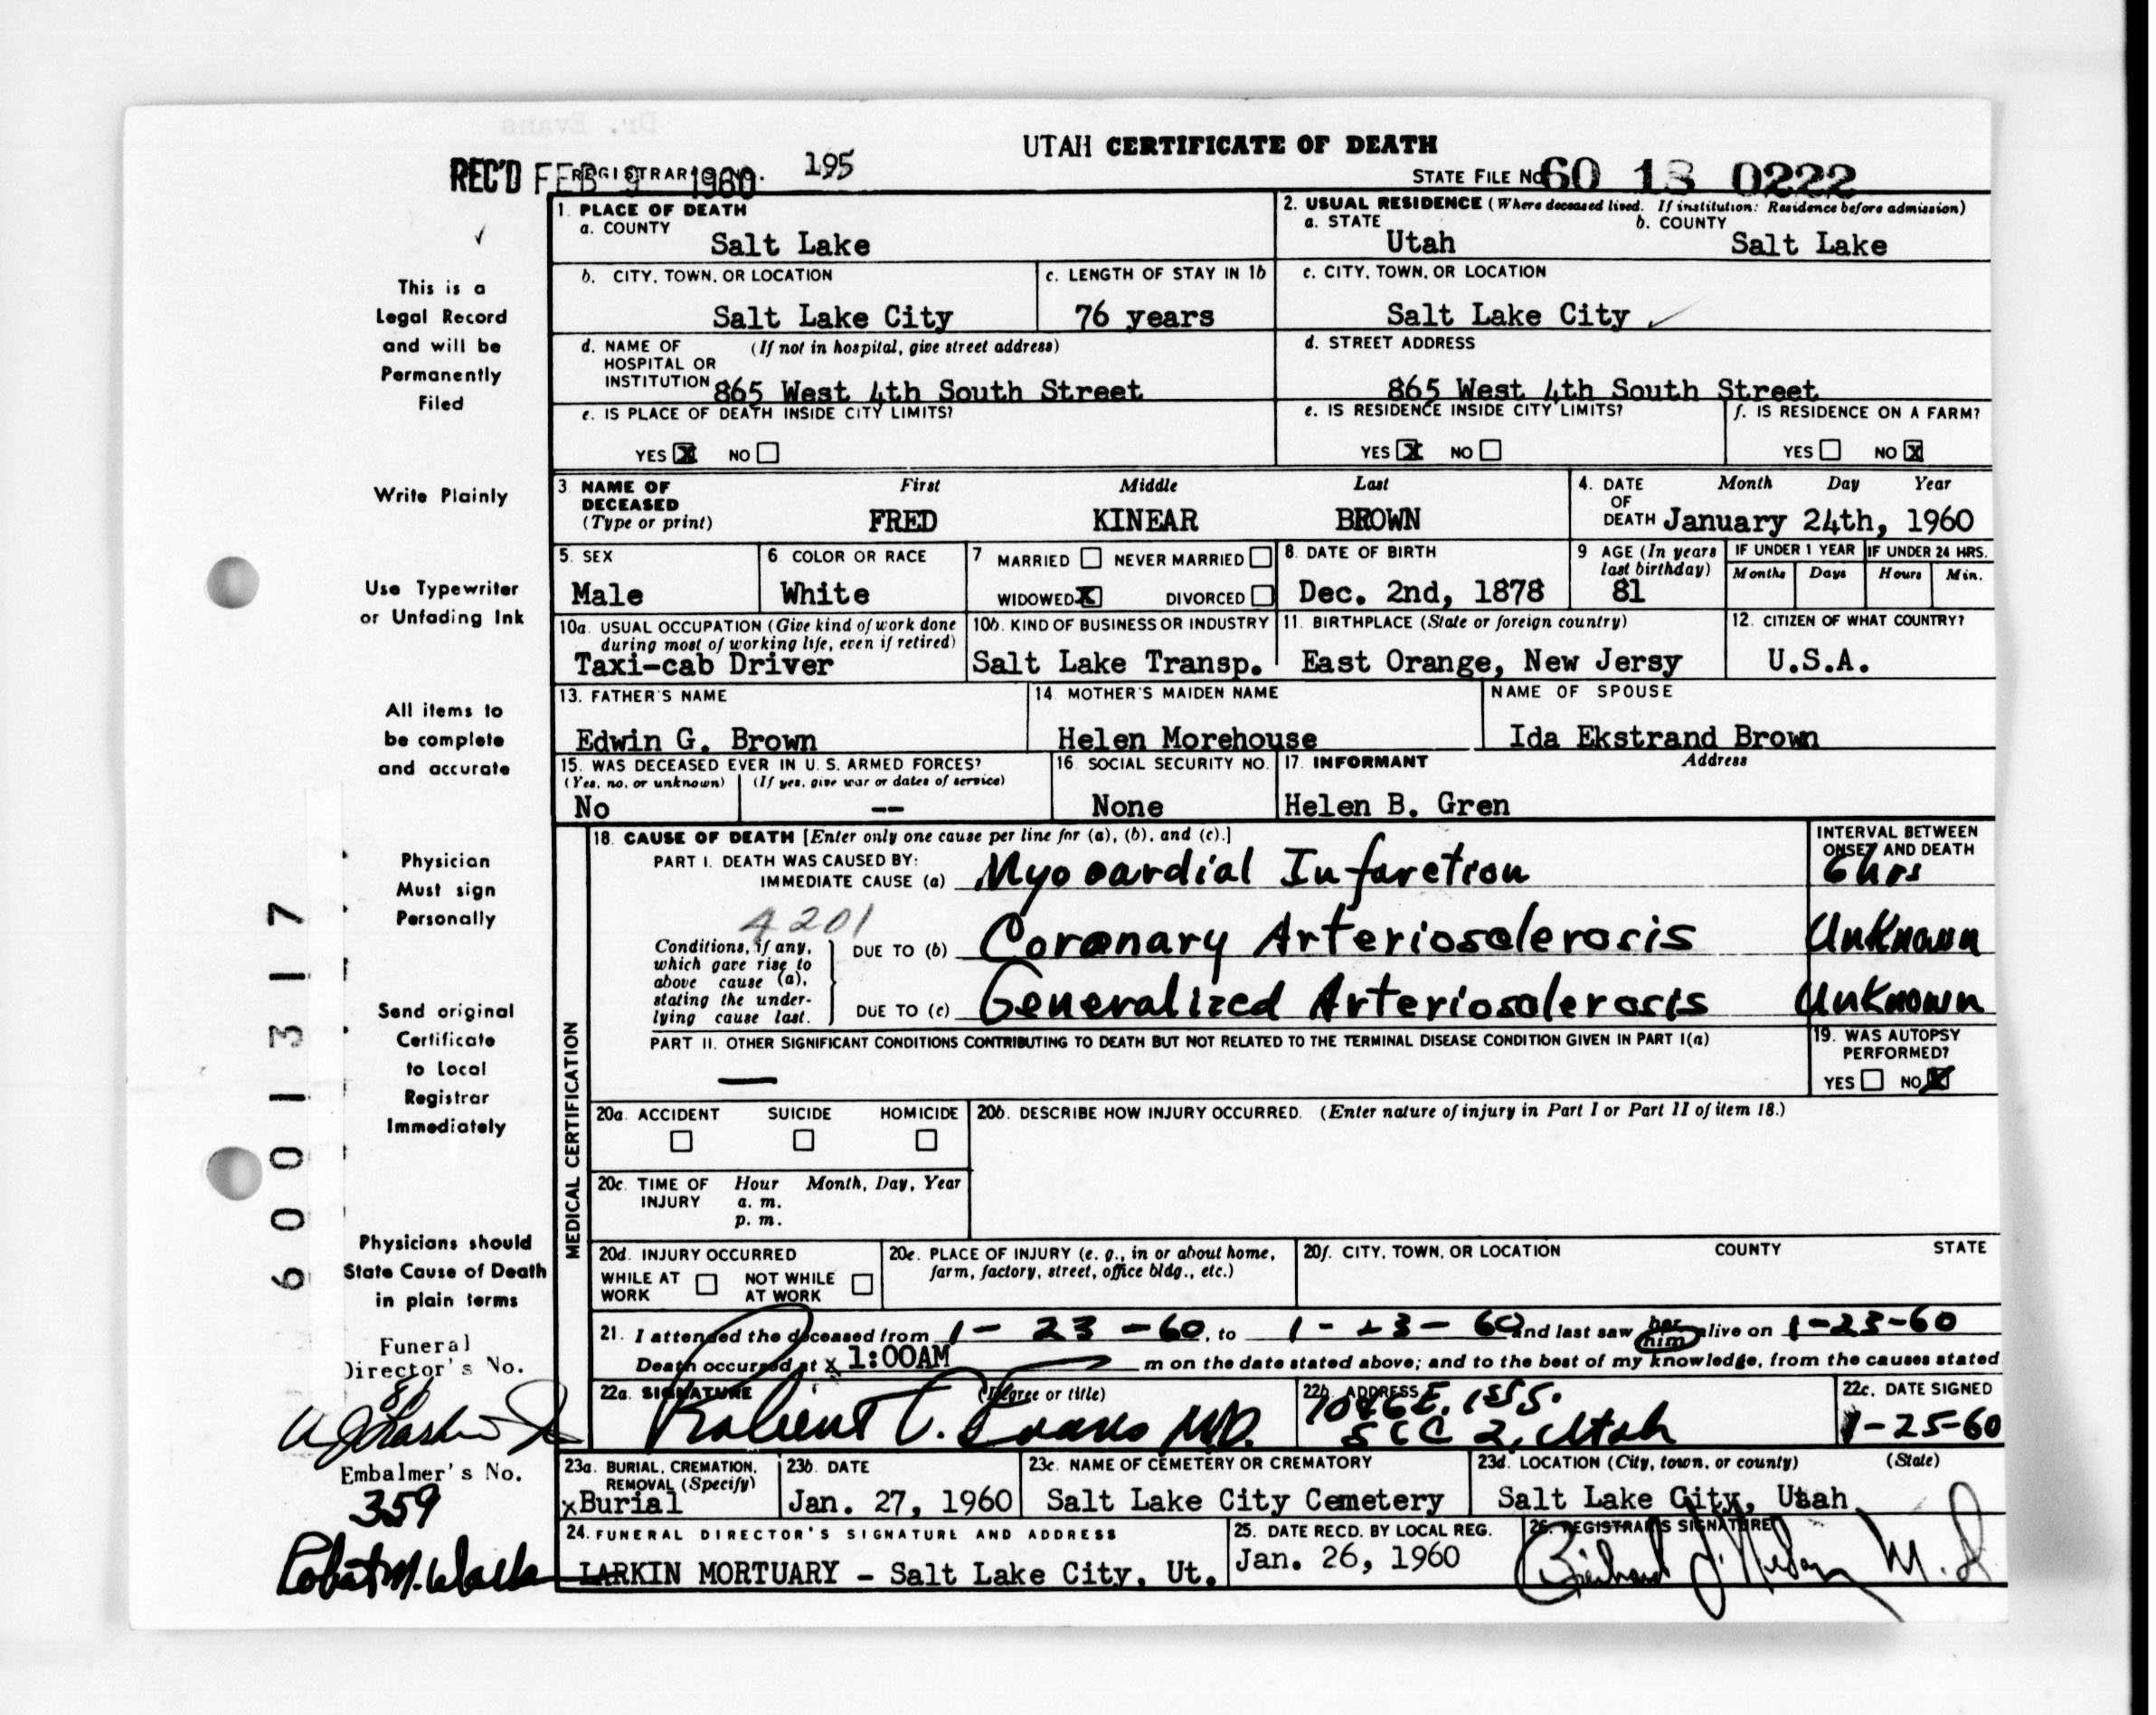 UTAH CERTIFICATE OF DEATH
REC'D FEB 9 1960 REGISTRAR'S NO. 195
STATE FILE NO. 60 18 0222
1. PLACE OF DEATH
a. COUNTY
Salt Lake
2. USUAL RESIDENCE (Where deceased lived. If institution: Residence before admission)
a. STATE b. COUNTY
Utah Salt Lake
b. CITY, TOWN, OR LOCATION
Salt Lake City
c. LENGTH OF STAY IN 1b
76 years
c. CITY, TOWN, OR LOCATION
Salt Lake City
d. NAME OF HOSPITAL OR INSTITUTION (If not in hospital, give street address)
865 West 4th South Street
d. STREET ADDRESS
865 West 4th South Street
e. IS PLACE OF DEATH INSIDE CITY LIMITS?
YES X NO
e. IS RESIDENCE INSIDE CITY LIMITS?
YES X NO
f. IS RESIDENCE ON A FARM?
YES NO X
3. NAME OF DECEASED (Type or print)
First Middle Last
FRED KINEAR BROWN
4. DATE OF DEATH Month Day Year
January 24th, 1960
5. SEX
Male
6. COLOR OR RACE
White
7 MARRIED NEVER MARRIED
WIDOWED X DIVORCED
8. DATE OF BIRTH
Dec. 2nd, 1878
9 AGE (In years last birthday)
81
IF UNDER 1 YEAR IF UNDER 24 HRS.
Months Days Hours Min.
10a. USUAL OCCUPATION (Give kind of work done during most of working life, even if retired)
Taxi-cab Driver
10b. KIND OF BUSINESS OR INDUSTRY
Salt Lake Transp.
11. BIRTHPLACE (State or foreign country)
East Orange, New Jersy
12. CITIZEN OF WHAT COUNTRY?
U.S.A.
13. FATHER'S NAME
Edwin G. Brown
14 MOTHER'S MAIDEN NAME
Helen Morehouse
NAME OF SPOUSE
Ida Ekstrand Brown
15. WAS DECEASED EVER IN U. S. ARMED FORCES?
(Yes, no, or unknown) (If yes, give war or dates of service)
No --
16. SOCIAL SECURITY NO.
None
17. INFORMANT Address
Helen B. Gren
MEDICAL CERTIFICATION
18. CAUSE OF DEATH [Enter only one cause per line for (a), (b), and (c).]
INTERVAL BETWEEN ONSET AND DEATH
PART I. DEATH WAS CAUSED BY:
IMMEDIATE CAUSE (a) Myocardial Infarction 6 hrs
4201
Conditions, if any, which gave rise to above cause (a), stating the underlying cause last.
DUE TO (b) Coronary Arteriosclerosis Unknown
DUE TO (c) Generalized Arteriosclerosis Unknown
PART II. OTHER SIGNIFICANT CONDITIONS CONTRIBUTING TO DEATH BUT NOT RELATED TO THE TERMINAL DISEASE CONDITION GIVEN IN PART I(a)
—
19. WAS AUTOPSY PERFORMED?
YES NO X
20a. ACCIDENT SUICIDE HOMICIDE
20b. DESCRIBE HOW INJURY OCCURRED. (Enter nature of injury in Part I or Part II of item 18.)
20c. TIME OF INJURY Hour Month, Day, Year
a. m.
p. m.
20d. INJURY OCCURRED
WHILE AT WORK NOT WHILE AT WORK
20e. PLACE OF INJURY (e. g., in or about home, farm, factory, street, office bldg., etc.)
20f. CITY, TOWN, OR LOCATION COUNTY STATE
21. I attended the deceased from 1-23-60, to 1-23-60 and last saw her him alive on 1-23-60
Death occurred at x 1:00AM m on the date stated above; and to the best of my knowledge, from the causes stated
22a. SIGNATURE (Degree or title)
Robert C. Evans M.D.
22b. ADDRESS
SLC 2, Utah
22c. DATE SIGNED
1-25-60
23a. BURIAL, CREMATION, REMOVAL (Specify)
xBurial
23b. DATE
Jan. 27, 1960
23c. NAME OF CEMETERY OR CREMATORY
Salt Lake City Cemetery
23d. LOCATION (City, town, or county) (State)
Salt Lake City, Utah
24. FUNERAL DIRECTOR'S SIGNATURE AND ADDRESS
LARKIN MORTUARY - Salt Lake City, Ut.
25. DATE RECD. BY LOCAL REG.
Jan. 26, 1960
26. REGISTRAR'S SIGNATURE
This is a
Legal Record
and will be
Permanently
Filed
Write Plainly
Use Typewriter
or Unfading Ink
All items to
be complete
and accurate
Physician
Must sign
Personally
Send original
Certificate
to Local
Registrar
Immediately
Physicians should
State Cause of Death
in plain terms
Funeral
Director's No.
Embalmer's No.
359
6001317
Dr. Evans